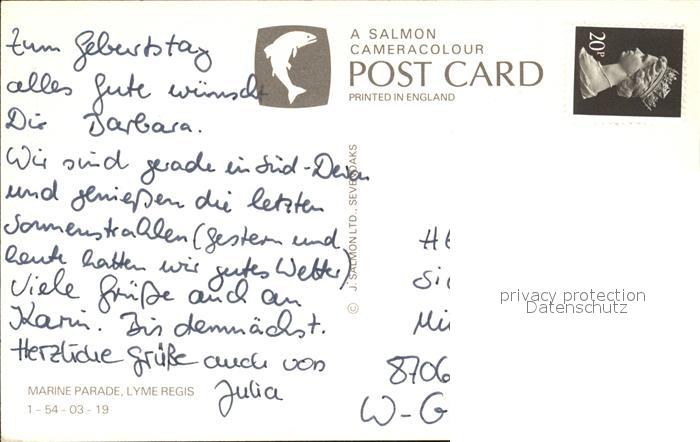 Zum Geburtstag
alles Gute wünscht
Dir Barbara.
Wir sind gerade in Süd-Devon
und genießen die letzten
Sonnenstrahlen (gestern und
heute hatten wir gutes Wetter)
Viele Grüße auch an
Karin. Bis demnächst.
Herzliche Grüße auch von
Julia
MARINE PARADE, LYME REGIS
1 - 54 - 03 - 19
A SALMON
CAMERACOLOUR
POST CARD
PRINTED IN ENGLAND
© J. SALMON LTD., SEVENOAKS
20P
8706
W-G
privacy protection
Datenschutz